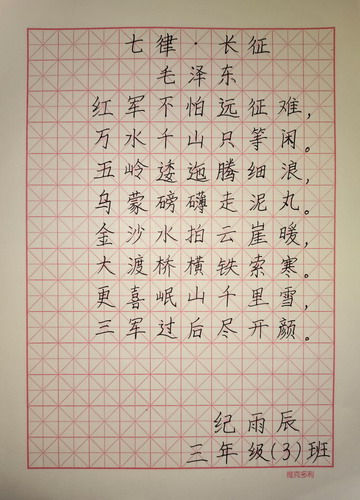 七律·长征
毛泽东
红军不怕远征难,
万水千山只等闲。
五岭逶迤腾细浪,
乌蒙磅礴走泥丸。
金沙水拍云崖暖,
大渡桥横铁索寒。
更喜岷山千里雪,
三军过后尽开颜。
纪雨辰
三年级(3)班
维克多利